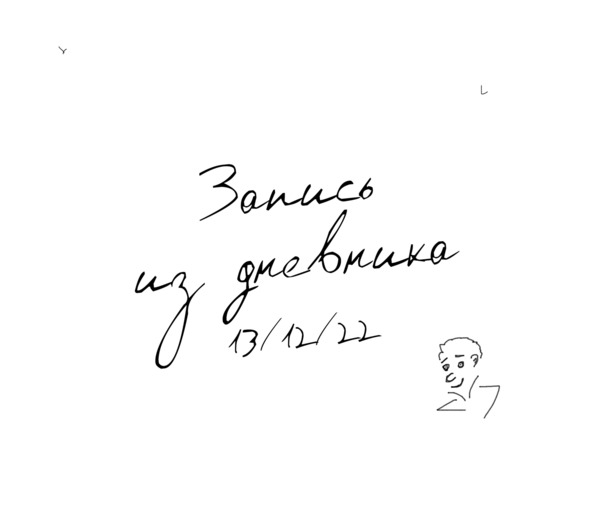 Y
L
Запись
из дневника
13/12/22